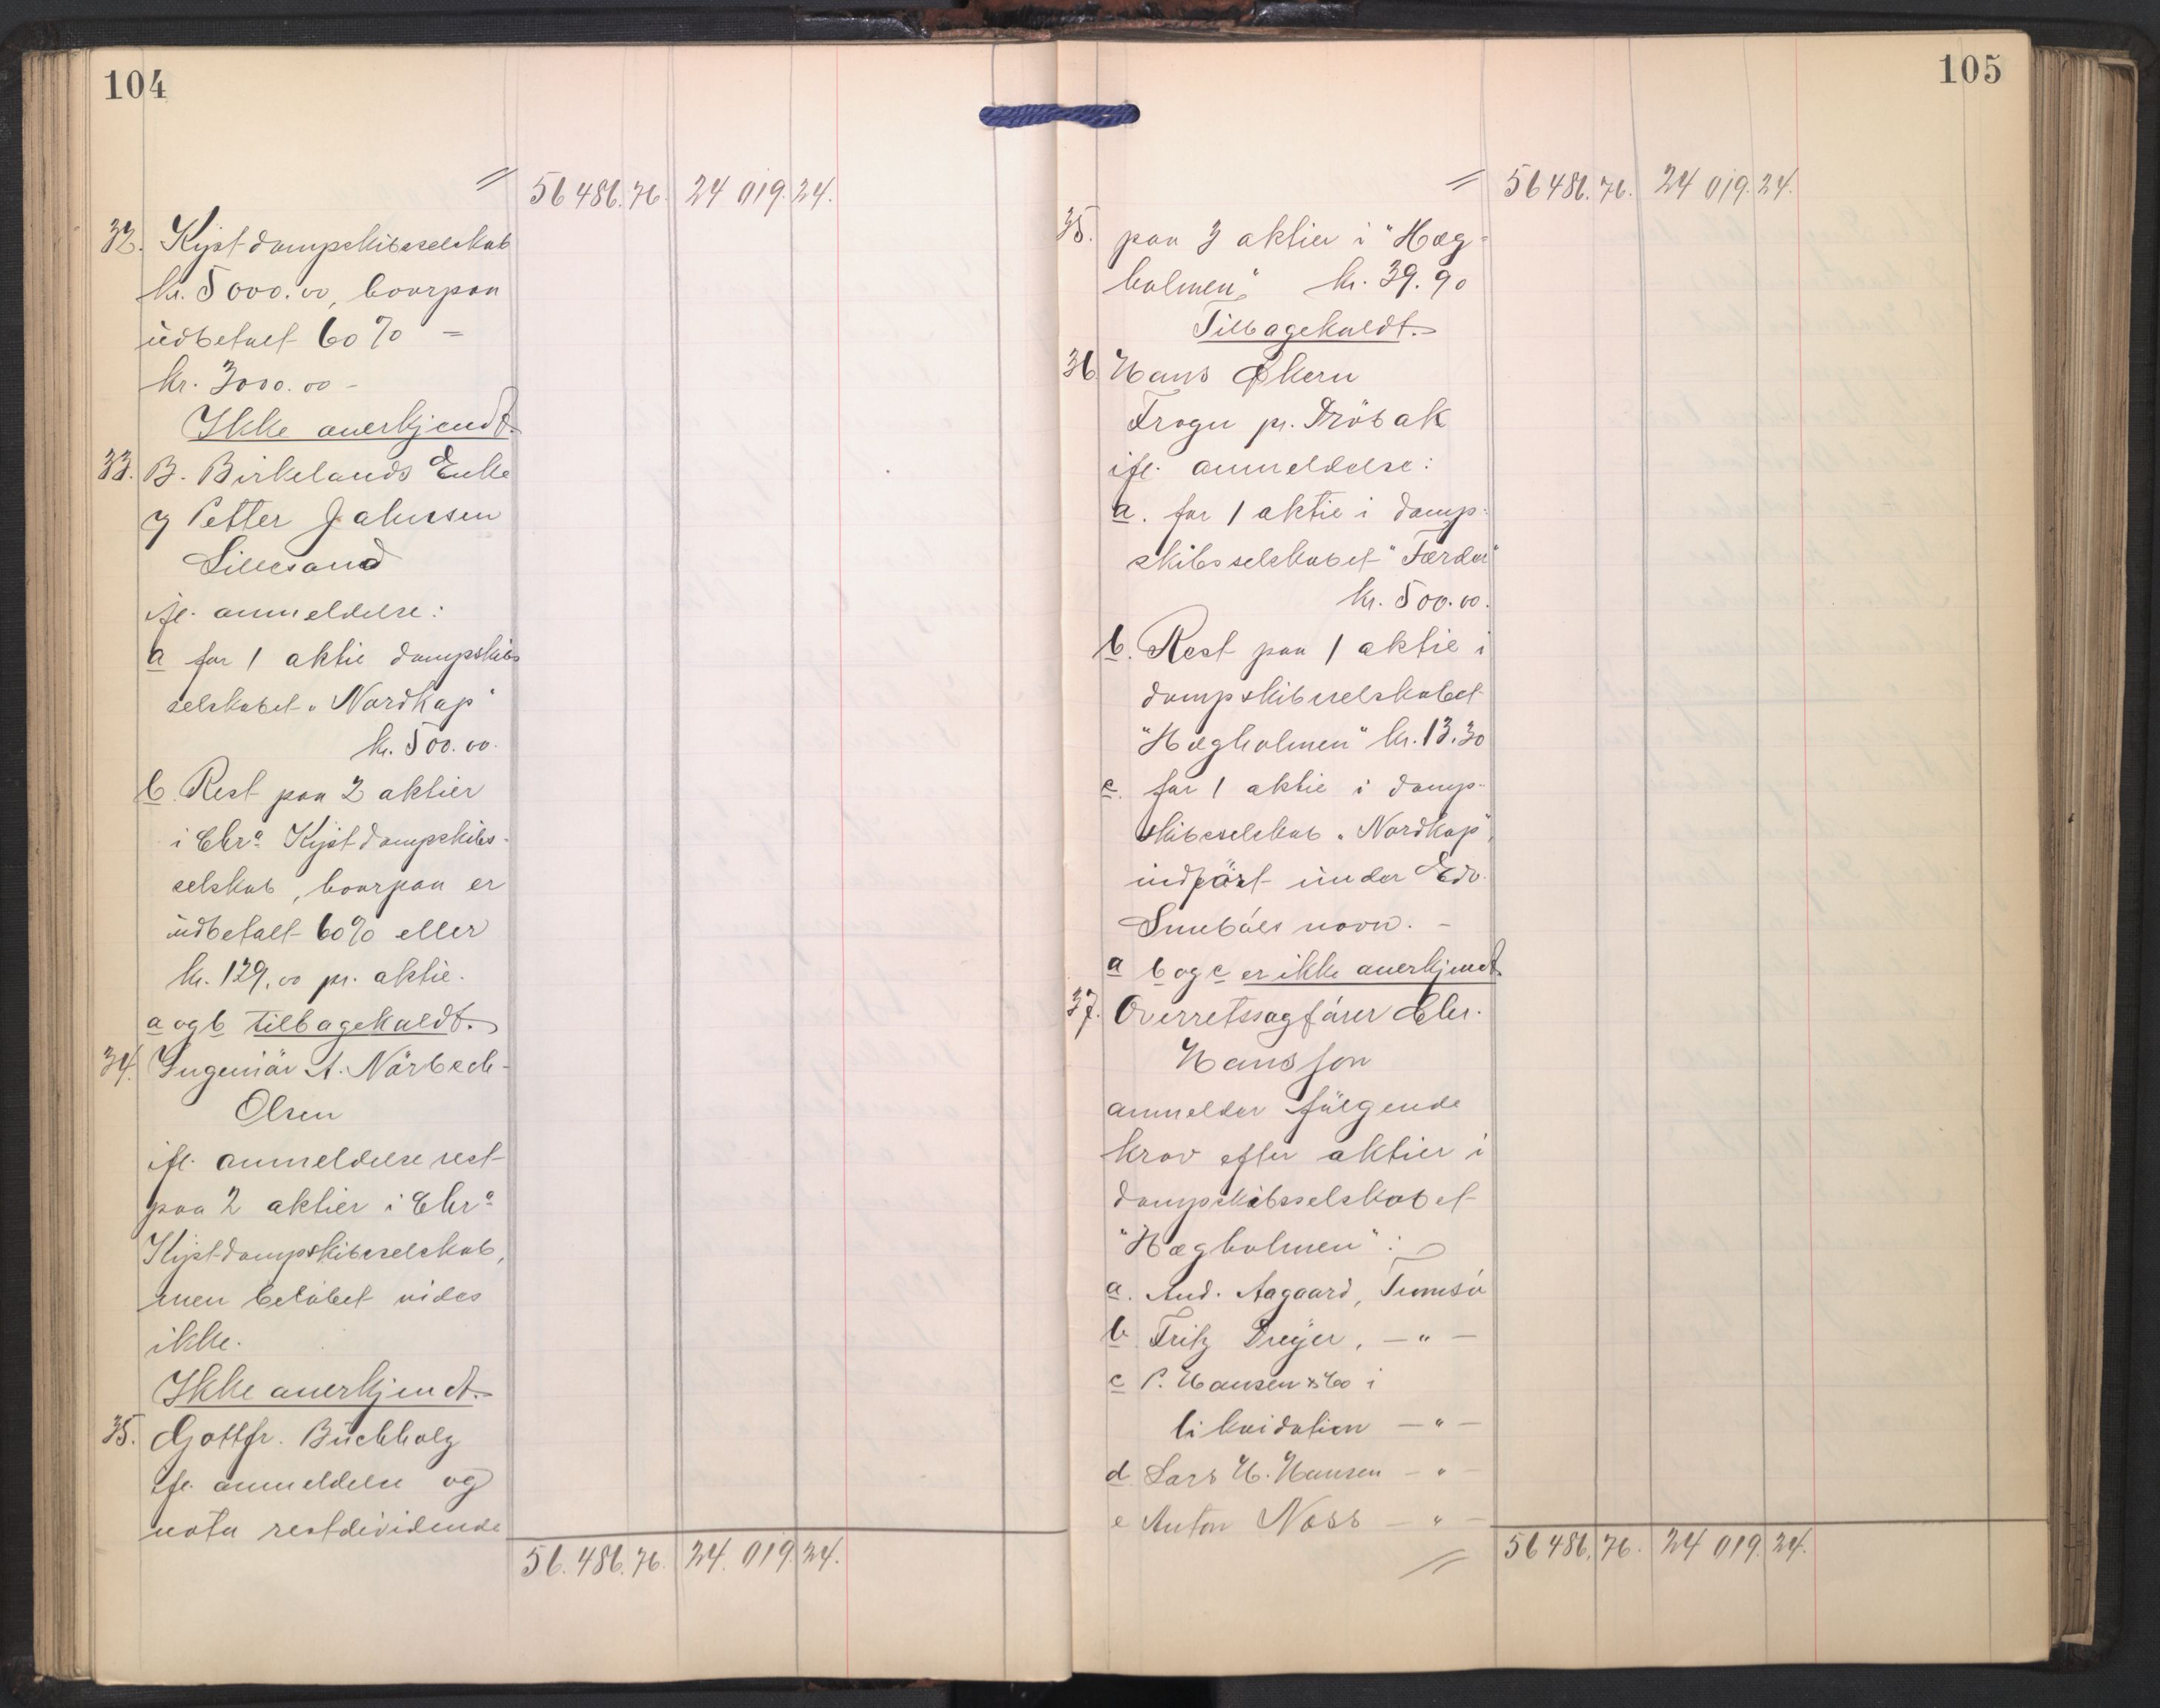 104
〃 56 486.76. 24 019.24.
32. Kyst dampskibsselskab
kr. 5000.00, hvorpaa
udbetalt 60% =
kr. 3000.00 -
Ikke anerkjendt.
33. B. Birkelands Enke
Petter Jahnsen
Lillesand
ifl. anmeldelse:
a for 1 aktie dampskibs
selskabet „Nordkap"
kr. 500.00.
b. Rest paa 2 aktier
i Chra Kyst dampskibs-
selskab, hvorpaa er
udbetalt 60% eller
kr. 129.00 pr. aktie.
a og b tilbagekaldt.
34. Ingeniör A. Nörbech-
Olsen
ifl. anmeldelse rest
paa 2 aktier i Chra
Kyst dampskibsselskab,
men belöbet vides
ikke.
Ikke anerkjendt.
35. Gottfr. Buchholz
ifl. anmeldelse og
nota restdividende
56.486.76. 24.019.24.
105
〃 56 486.76. 24 019.24.
35. paa 3 aktier i "Hæg-
holmen" kr. 39.90
Tilbagekaldt.
36. Hans Økern
Frogn pr. Dröbak
ifl. anmeldelse:
a. for 1 aktie i damp-
skibsselskabet "Færder"
kr. 500.00.
b. Rest paa 1 aktie i
dampskibsselskabet
"Hægholmen" kr. 13.30
c. for 1 aktie i damp-
skibsselskab „Nordkap",
indfört under Edv.
Smeböls navn. -
a b og c er ikke anerkjendt.
37. Overretssagförer Chr.
Hansson
anmelder fölgende
krav efter aktier i
dampskibsselskabet
"Hægholmen":
a. And. Aagaard, Tromsö
b Fritz Dreyer, — „ —
c P. Hansen & Co i
likvidation — „ —
d Lars H. Hansen — „ —
e Anton Næss — „ —
〃 56 486.76. 24 019.24.